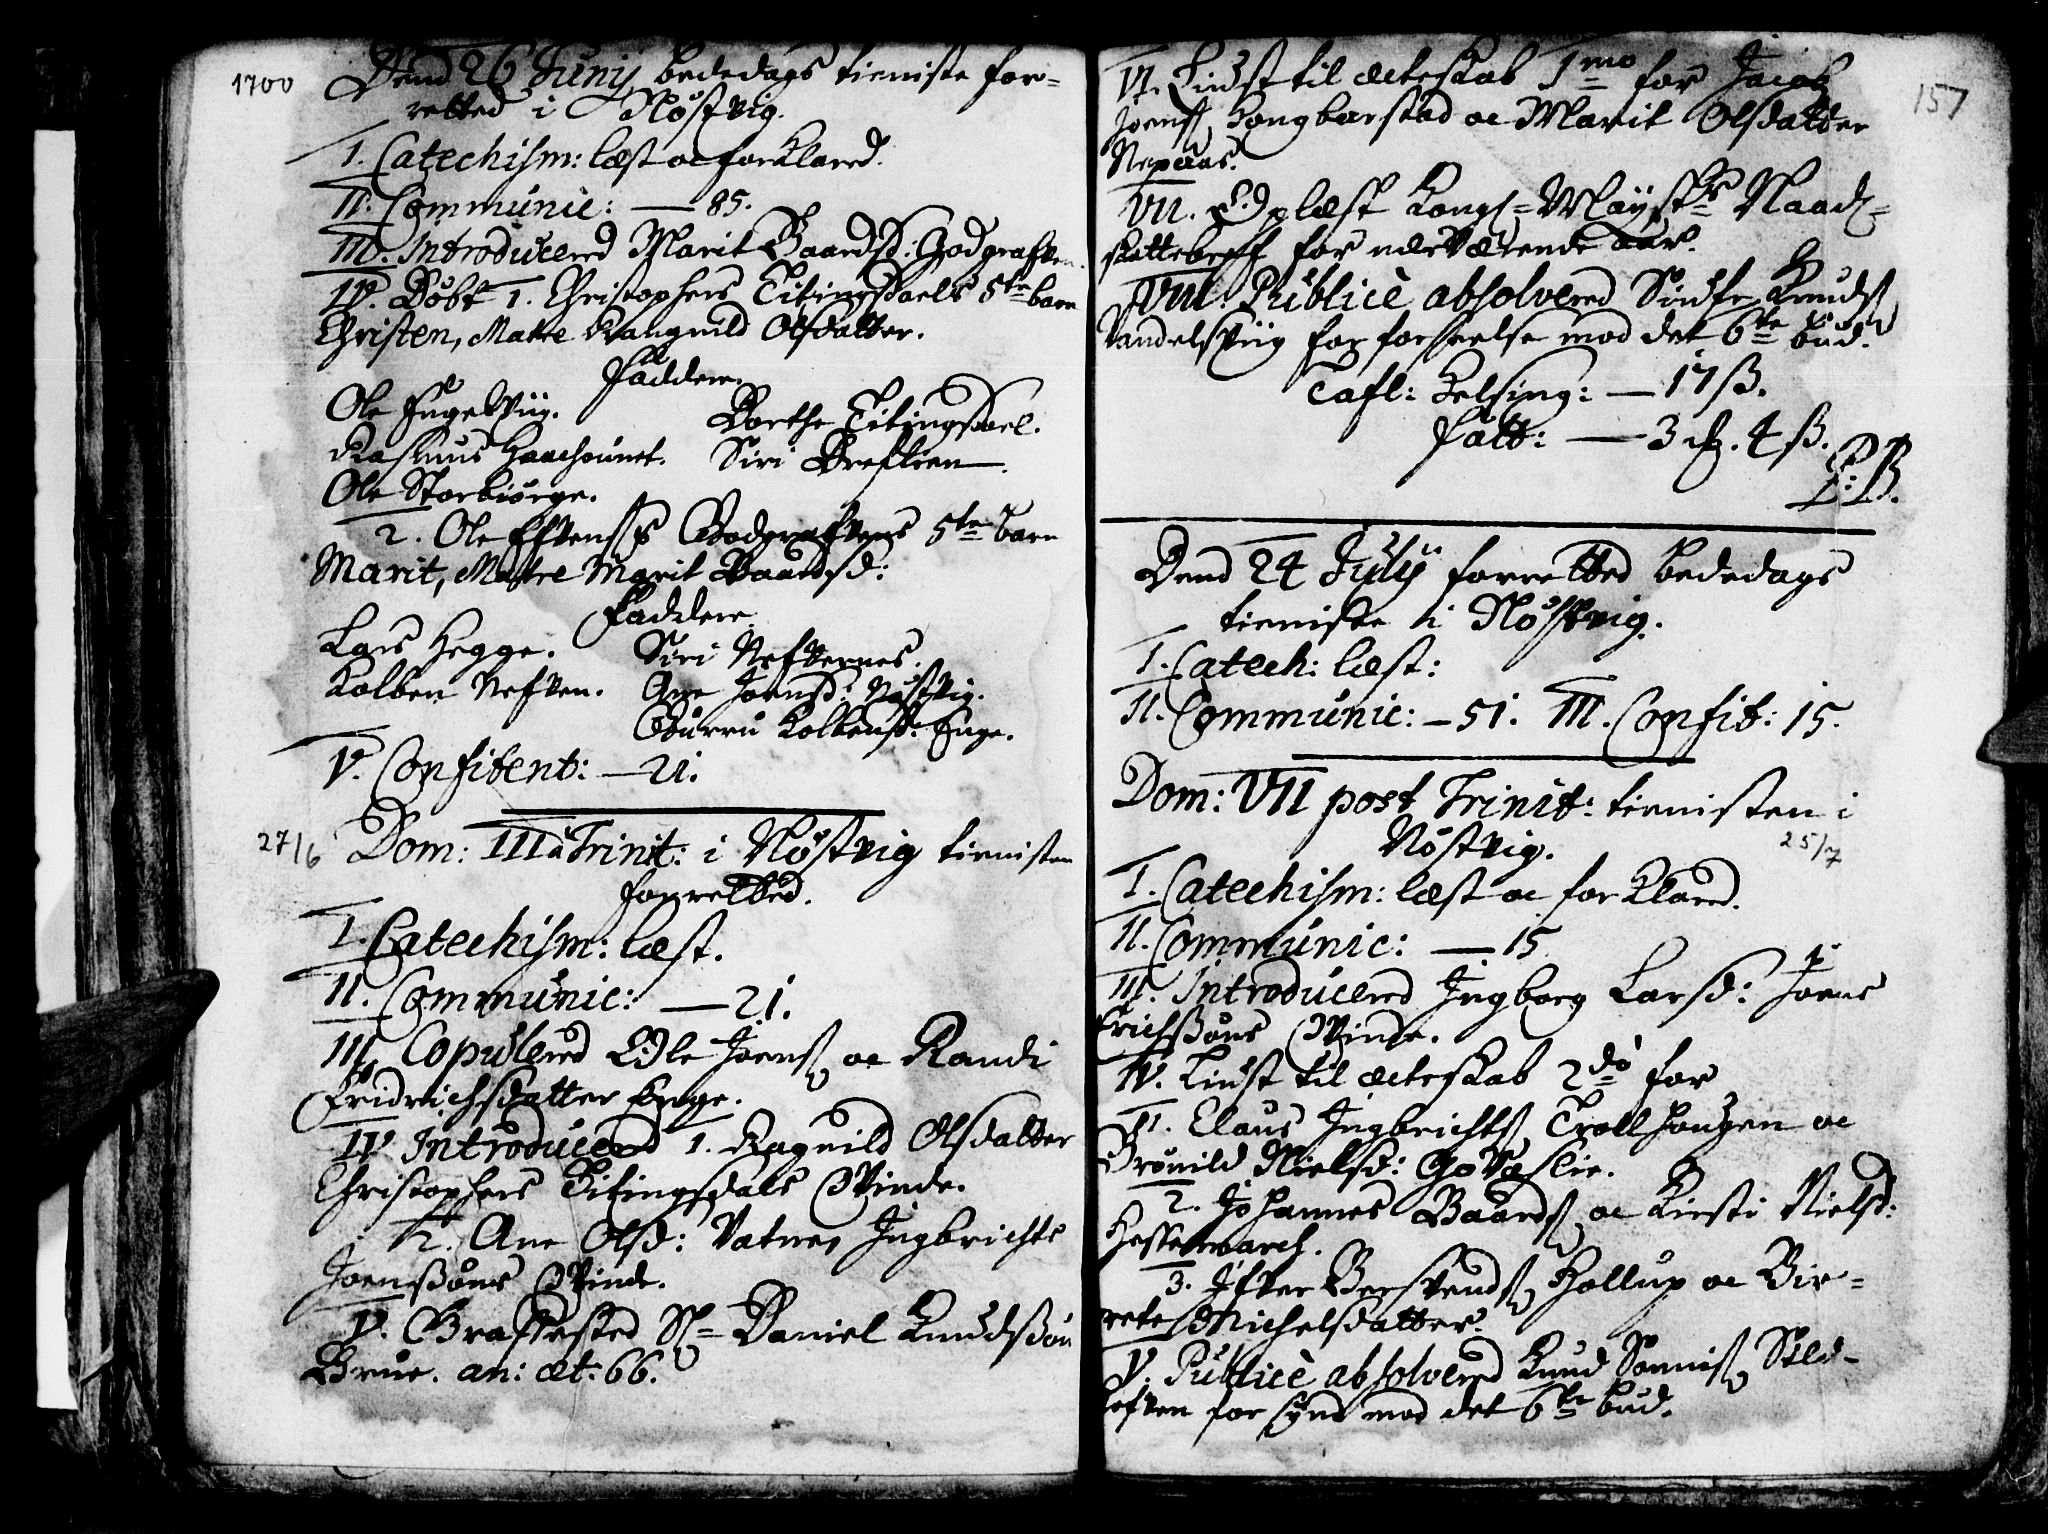 1700
Dend 26 Junij bededags tieniste for-
retted i Nöstvig.
I. Catechism: læst oc forklared.
II. Communic: — 85.
III. Introducered Marit Baardsd: Godgraften.
IV. Döbt 1. Christophers Titingsdaels 5te barn
Christen, Matre Rangnild Olsdatter.
Faddere.
Ole Engelsviig. Dorthe Titingsdael.
Rasmus Haachounet. Siri Breflien.
Ole Storbiörge.
2. Ole Efvens: Godgraftens 5te barn
Marit, Matre Marit Baardsd:
Faddere.
Lars Hegge. Siri Nefternes.
Kolben Nefven. Ane Joensd: Nöstvig.
Guru Kolbensd: Enge.
V. Confitent: — 21.
27/6 Dom: III à Trinit: i Nöstvig tienisten
forretted.
I. Catechism: læst.
II. Communic: — 21.
III. Copulered Ole Joens. oc Randi
Fridrichsdatter Enge.
IV Introducered 1. Ragnild Olsdatter
Christophers Titingsdals Qvinde.
2. Ane Olsd: Vatnes Ingbrichts
Joenssöns Qvinde.
V. Graffested Sl= Daniel Knudssön
Brue. an: æt: 66.
157
VI. Liust til ecteskab 1mo for Jacob
Joens. Hongbarstad oc Marit Olsdatter
Nepaas.
VII. Oplæst Kongl= Mayst:s Naads=
skattebreff for nærværende aar.
VIII. Publicè absolvered Knuds.
for forseelse mod det 6te bud.
Tafl: Helsing: — 17 ß.
Fatt: — 3 . 4 ß.
P: B.
Dend 24 Julij forretted bededags
tieniste i Nöstvig.
I. Catech: læst:
II. Communic: — 51. III. Confit: 15.
Dom: VII post Trinit: tienisten i
Nöstvig. 25/7
I. Catechism: læst oc forklared.
II. Communic: — 15
III. Introducered Ingborg Larsd: Joens
Erichssöns Qvinde.
IV. Liust til ecteskab 2do for
1. Claus Ingbrichts. Trollhougen oc
Grönild Nielsd: Godøslie.
2. Johannes Baards. oc Kirsti Nielsd:
Hestemarch.
3. Ifver Bersvends. Hollup oc Bir=
rete Michelsdatter.
V. Publicè absolvered Knud Sonnis. Sild-
for synd mod det 6te bud.